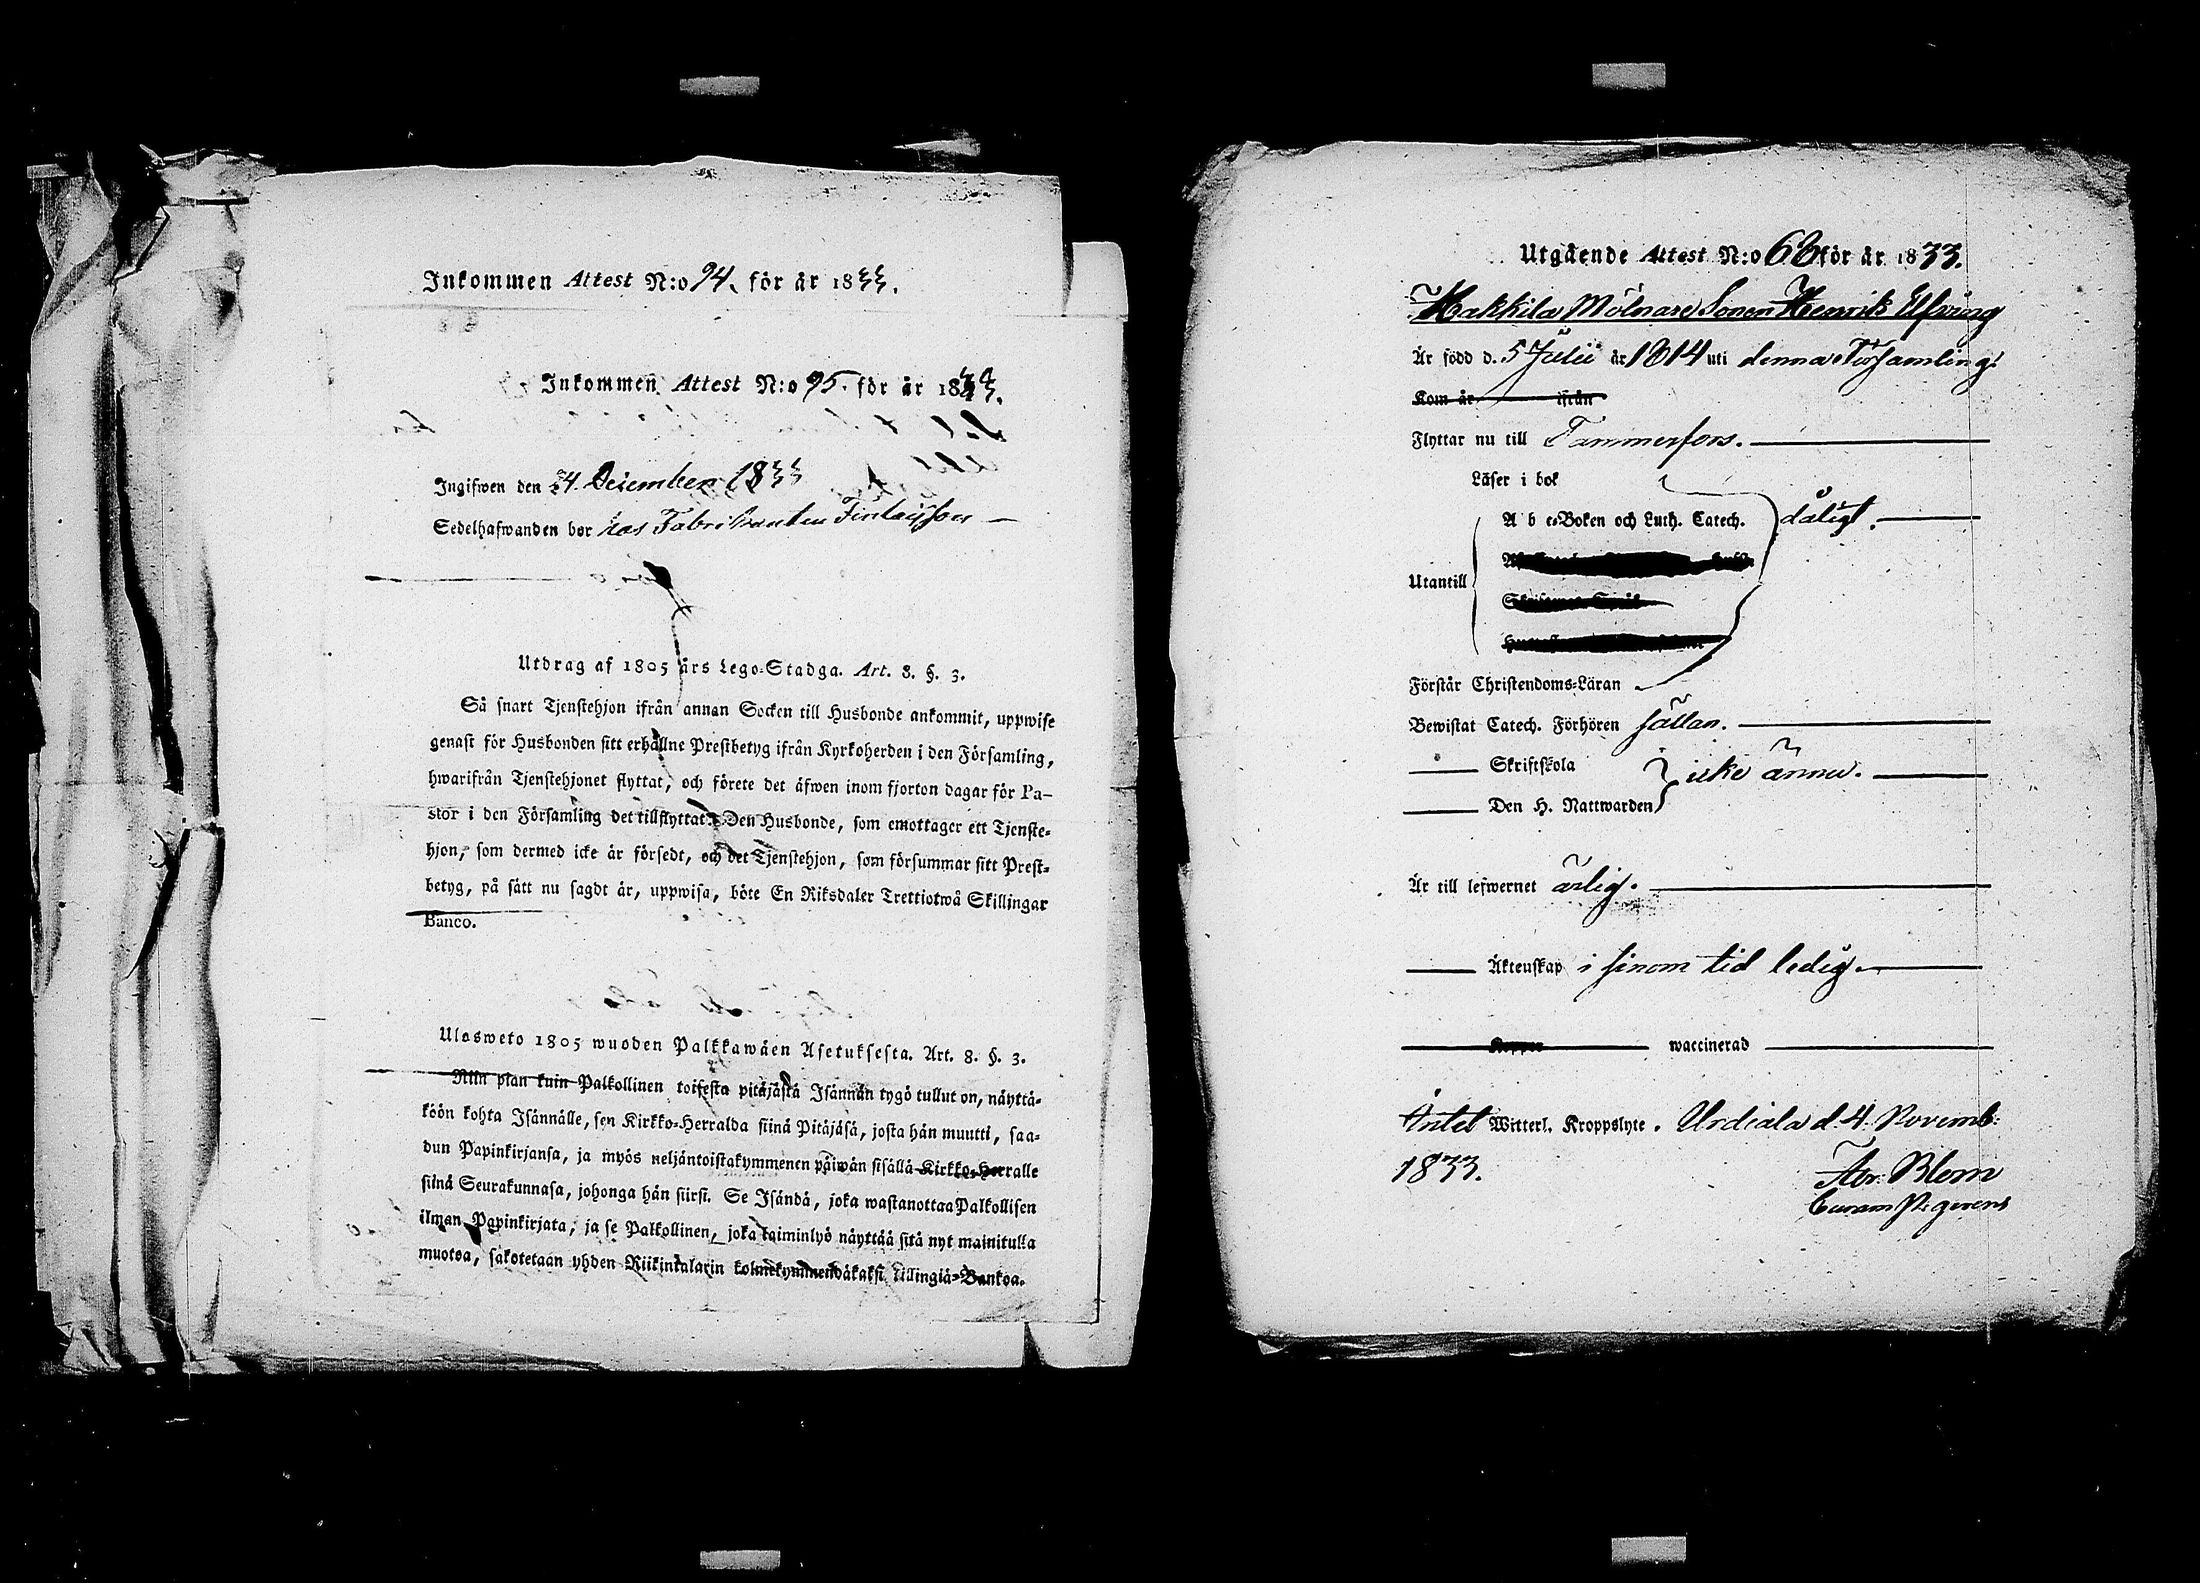 Inkommen Attest N:o 94. för år 1833.
Inkommen Attest N:o 95. för år 1833.
Ingifwen den 24. December 1833
Sedelhafwanden bor hos Fabrikanten Finlaysson
Utdrag af 1805 års Lego-Stadga. Art. 8. §. 3.
Så snart Tjenstehjon ifrån annan Socken till Husbonde ankommit, uppwise
genast för Husbonden sitt erhållne Prestbetyg ifrån Kyrkoherden i den Församling,
hwarifrån Tjenstehjonet flyttat, och förete det äfwen inom fjorton dagar för Pa-
stor i den Församling det tillflyttat. Den Husbonde, som emottager ett Tjenste-
hjon, som dermed icke är försedt, och det Tjenstehjon, som försummar sitt Prest-
betyg, på sätt nu sagdt är, uppwisa, böte En Riksdaler Trettiotwå Skillingar
Banco.
Ulosweto 1805 wuoden Palkkawäen Asetuksesta. Art. 8. §. 3.
Niin pian kuin Palkollinen toisesta pitäjästä Isännän tygö tullut on, näyttä-
köön kohta Isännälle, sen Kirkko-Herralda siinä Pitäjäsä, josta hän muutti, saa-
dun Papinkirjansa, ja myös neljäntoistakymmenen päiwän sisällä Kirkko-Herralle
siinä Seurakunnasa, johonga hän siirsi. Se Isändä, joka wastanottaa Palkollisen
ilman Papinkirjata, ja se Palkollinen, joka laiminlyö näyttää sitä nyt mainitulla
muotoa, sakotetaan yhden Riikintalarin kolmekymmendäkaksi killingiä Bankoa.
Utgående Attest N:o 68 för år 1833.
Hakkila Mölnare Sonen Henrik Elfving
Är född d. 5 Julii år 1814 uti denna Församling
Kom år ifrån
Flyttar nu till Tammerfors.
Läser i bok
A b c-Boken och Luth. Catech. dåligt.
Utantill
Förstår Christendoms-Läran
Bewistat Catech. Förhören sällan.
Skriftskola icke ännu.
Den H. Nattwarden
Är till lefwernet ärlig.
Äktenskap i sinom tid ledig
Koppor waccinerad
Intet Witterl. Kroppslyte. Urdiala d. 4. Novemb:
1833. Abr. Blom